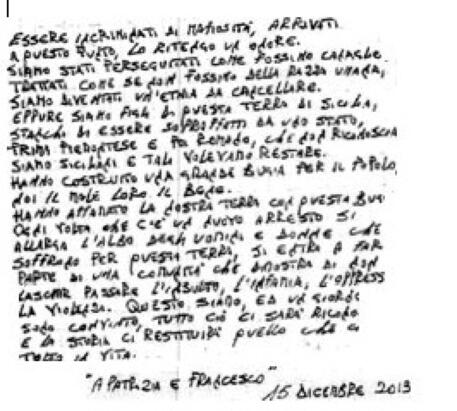 ESSERE INCRIMINATI DI MAFIOSITÀ, ARRIVATI
A QUESTO PUNTO, LO RITENGO UN ONORE.
SIAMO STATI PERSEGUITATI COME FOSSIMO CANAGLIE
TRATTATI COME SE NON FOSSIMO DELLA RAZZA UMANA,
SIAMO DIVENTATI UN'ETNIA DA CANCELLARE.
EPPURE SIAMO FIGLI DI QUESTA TERRA DI SICILIA,
STANCHI DI ESSERE SOPRAFFATTI DA UNO STATO,
PRIMA PIEMONTESE E POI ROMANO, CHE NON RICONOSCIA
SIAMO SICILIANI E TALI VOLEVAMO RESTARE.
HANNO COSTRUITO UNA GRANDE BUGIA PER IL POPOLO,
NOI IL MALE LORO IL BENE.
HANNO AFFAMATO LA NOSTRA TERRA CON QUESTA BUGI
OGNI VOLTA CHE C'È UN NUOVO ARRESTO SI
ALLARGA L'ALBO DEGLI UOMINI E DONNE CHE
SOFFRONO PER QUESTA TERRA, SI ENTRA A FAR
PARTE DI UNA COMUNITÀ CHE DIMOSTRA DI NON
LASCIAR PASSARE L'INSULTO, L'INFAMIA, L'OPPRESS
LA VIOLENZA. QUESTO SIAMO, ED UN GIORNO
SONO CONVINTO, TUTTO CIÒ CI SARÀ RICONO
E LA STORIA CI RESTITUIRÀ QUELLO CHE CI
TOLTO IN VITA.
"A PATRIZIA E FRANCESCO" 15 DICEMBRE 2013